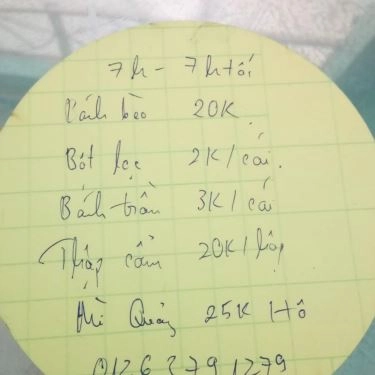 7h - 7h tối
Bánh bèo 20K
Bột lọc 2K/cái.
Bánh trần 3K/cái
Thập cẩm 20K/hộp
Mì Quảng 25K/tô
0126 379 1279